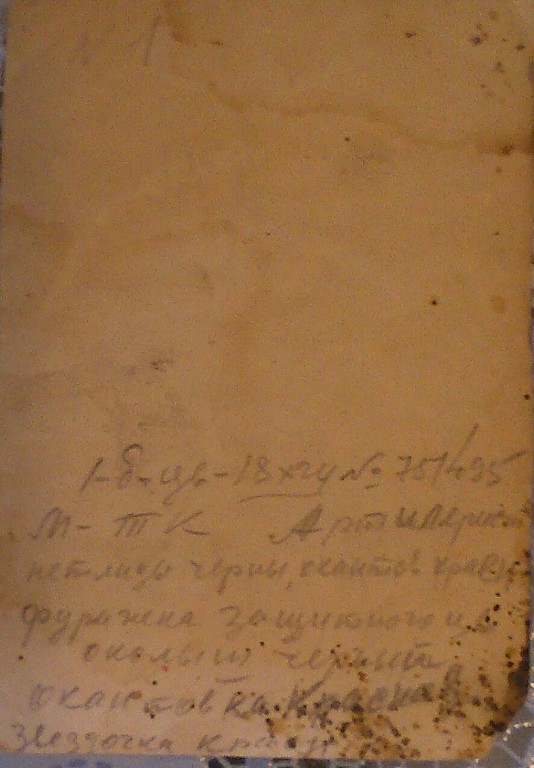 N 1
1-б. цв-18х24 № 751/495
М-ТК Артилерист
петлицы черны, окантов красн
фуражка защитного цв
околыш черный
окантовка красная
Звездочка красн